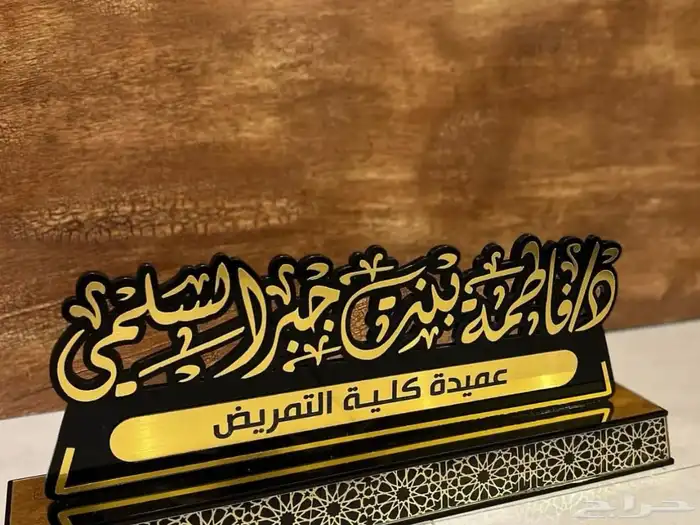 د/فاطمة بنت جبر السليمي
عميدة كلية التمريض
حراج